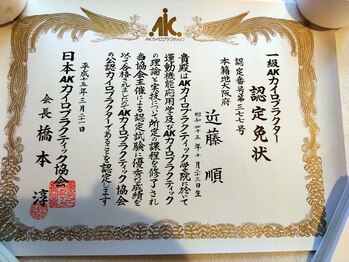 AK
AKカイロプラクティック
一級AKカイロプラクター
認定免状
認定番号第三七七号
本籍地大阪府
近藤 順
昭和四十五年十月二十三日生
貴殿はAKカイロプラクティック学院に於いて
運動機能応用学及びAKカイロプラクティック
の理論と実技について所定の課程を修了され
当協会主催による認定試験に優秀の成績を
以て合格されましたのでAKカイロプラクティック協会
の公認カイロプラクターであることを認定します
平成十六年三月二一日
日本AKカイロプラクティック協会
会長 橋本 淳